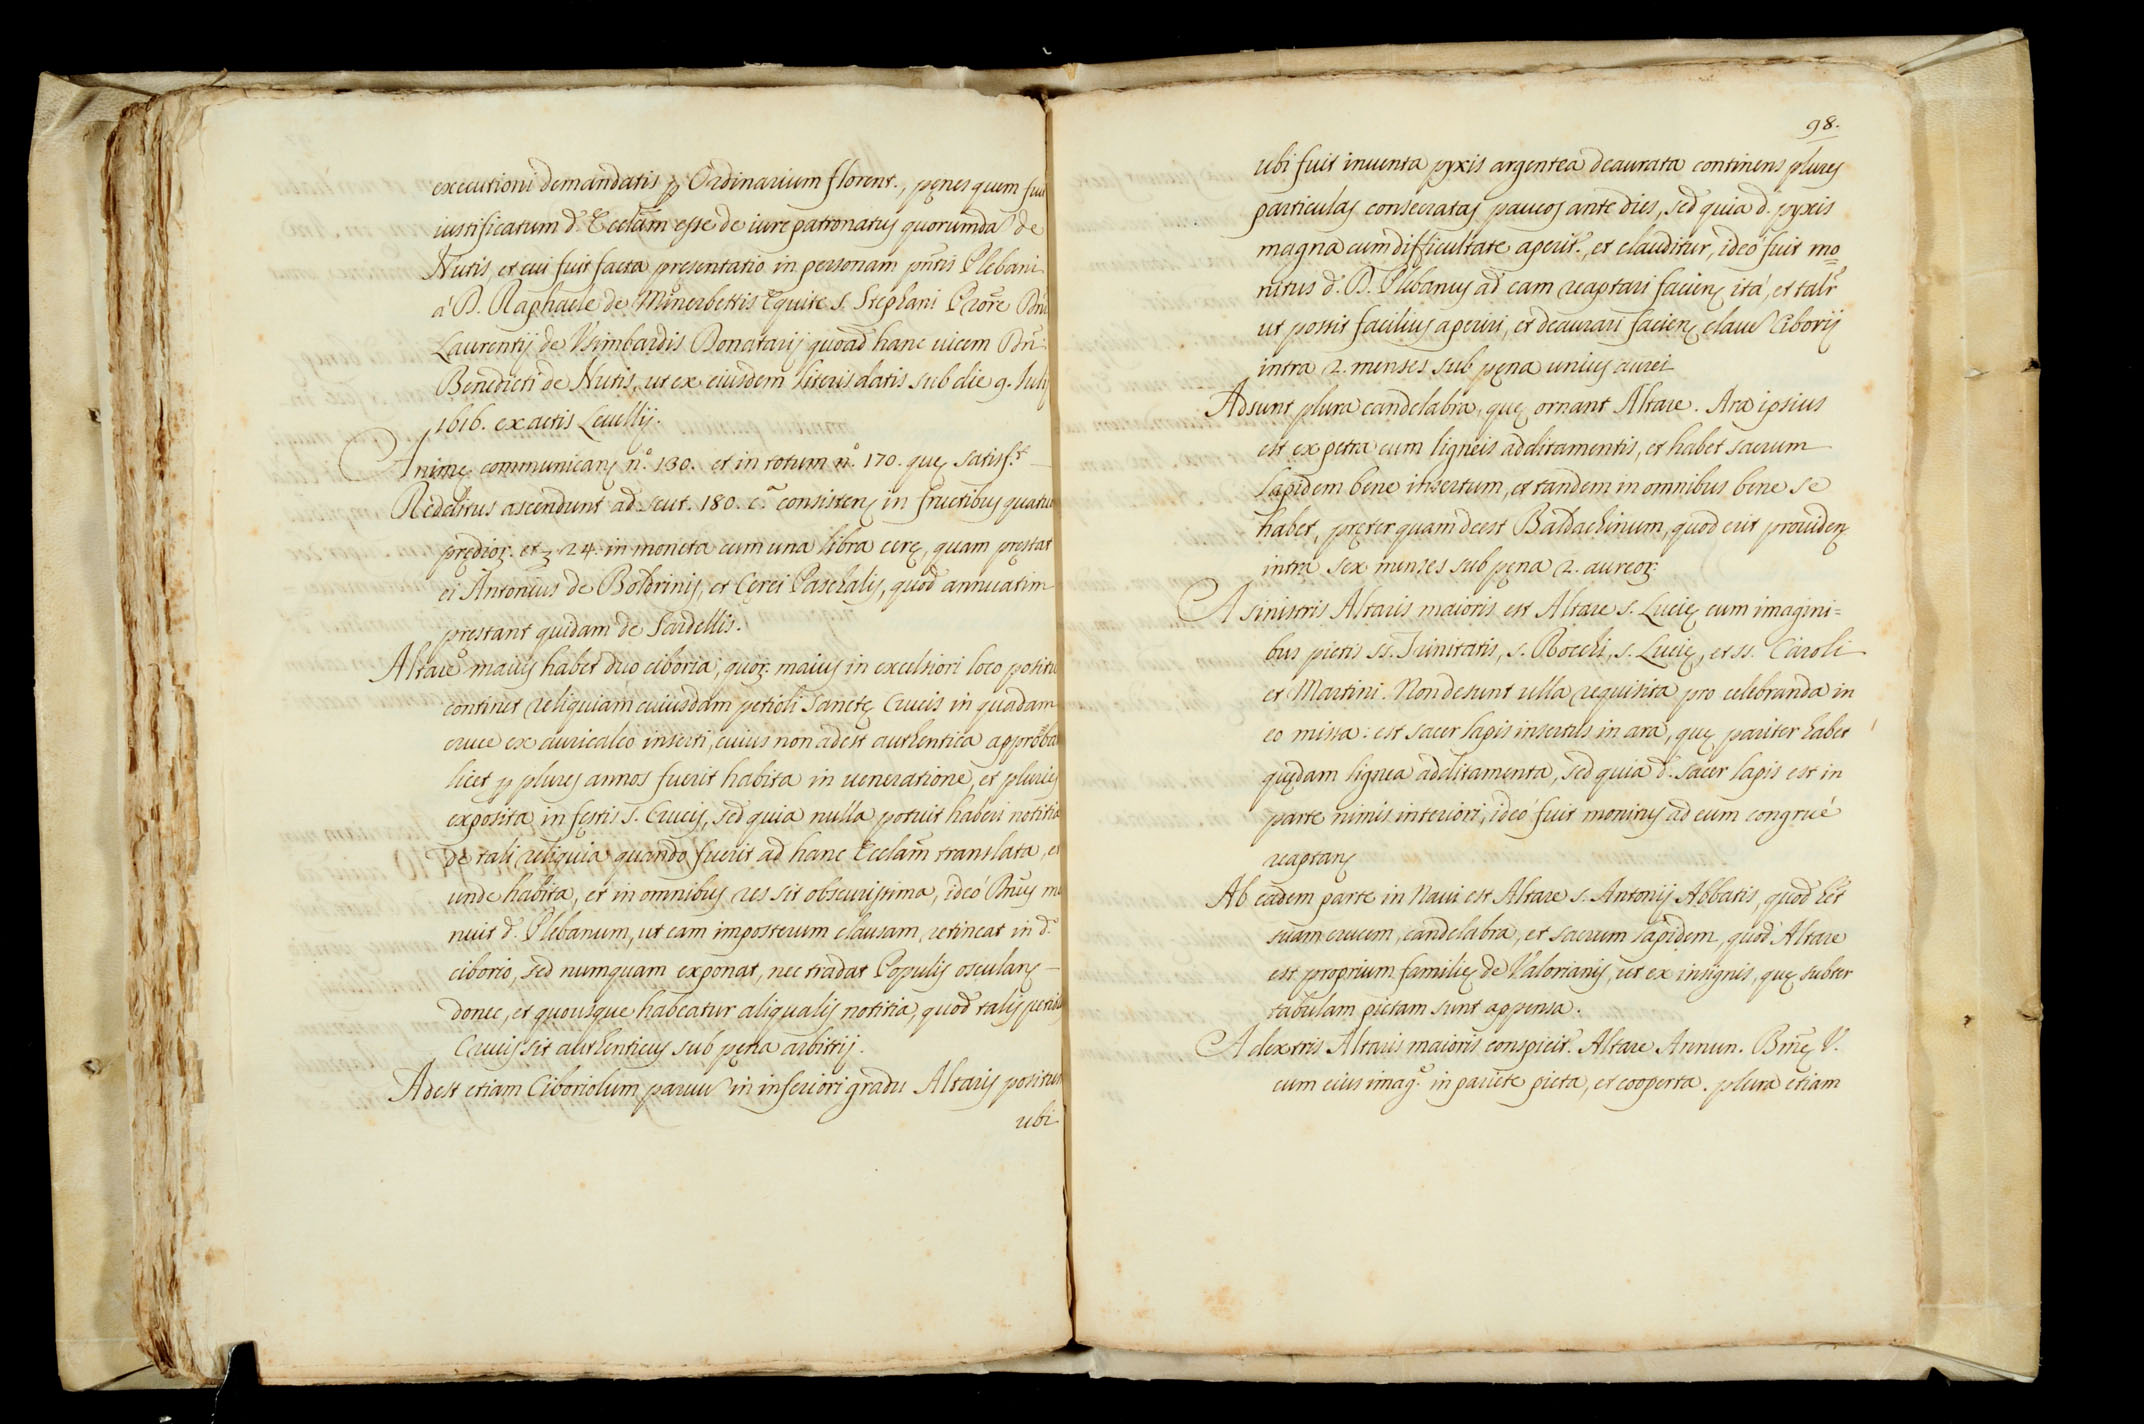 executioni demandatis p Ordinarium florent., pęnes quem fuit
iustificatum d. Eccl̃am esse de iure patronatus quorumdã de
Nutis, et cui fuit facta presentatio in personam pñtis Plebani
a D. Raphaele de Minerbettis Equite s. Stephani Prore Dñi
Laurentij de Usimbardis Donatarij quoad hanc vicem Dñi
Benedicti de Nutis, ut ex eiusdem literis datis sub die 9. Iulij
1616. ex actis Leuellij.
Animę communicans n.º 130. et in totum n.º 170. quę satisf.t
Redditus ascendunt ad scut. 180. c.ª consistens in fructibus quatuor
prędior. et 24. in moneta cum una libra cerę, quam pręstat
ei Antonius de Boldrinis, et Cerei Paschalis, quod annuatim
pręstant quidam de Sardellis.
Altare maius habet duo ciboria, quor. maius in excelsiori loco positũ
continet reliquiam cuiusdam petioli Sanctę Crucis in quadam
cruce ex auricalco inserti, cuius non adest authentica approba
licet p plures annos fuerit habita in ueneratione, et pluries
exposita in festis S. Crucis, sed quia nulla potuit haberi notitia
de tali reliquia quando fuerit ad hanc Eccl̃am translata, et
unde habita, et in omnibus res sit obscurissima, ideo Dñus mo
nuit d. Plebanum, ut eam imposterum clausam retineat in d.
ciborio, sed numquam exponat, nec tradat Populis osculans
donec, et quousque habeatur aliqualis notitia, quod talis petiolus
Crucis sit authenticus sub pęna arbitrij.
Adest etiam Ciboriolum paruũ in inferiori gradu Altaris positum
ubi
98.
ubi fuit inuenta pyxis argentea deaurata continens plures
particulas consecratas paucos ante dies, sed quia d. pyxis
magna cum difficultate aperit.r, et clauditur, ideo fuit mo=
nitus d. D. Plebanus ad eam reaptari faciens ità, et talr
ut possit facilius aperiri, et deaurari faciens clauẽ Ciborij
intra 2. menses sub pęna unius aurei
Adsunt plura candelabra, quę ornant Altare. Ara ipsius
est ex petra cum ligneis additamentis, et habet sacrum
lapidem bene insertum, et tandem in omnibus bene se
habet, pręterquam deest Baldachinum, quod erit prouiden
intra sex menses sub pęna 2. aureor.
A sinistris Altaris maioris est Altare s. Lucię cum imagini=
bus pictis ss. Trinitatis, s. Rocchi, s. Lucię, et ss. Caroli
et Martini. Non desunt ulla requisita pro celebranda in
eo missa: est sacer lapis insertus in ara, quę pariter habet
quędam lignea additamenta, sed quia d. sacer lapis est in
parte nimis interiori, ideò fuit monitus ad eum congruè
reaptans
Ab eadem parte in Naui est Altare s. Antonij Abbatis, quod h̃et
suam crucem, candelabra, et sacrum lapidem, quod Altare
est proprium familię de Valorianis, ut ex insignis, quę subter
tabulam pictam sunt appensa.
A dextris Altaris maioris conspicit.r Altare Annun. Bm̃ę V.
cum eius imag.e in pariete picta, et cooperta. plura etiam